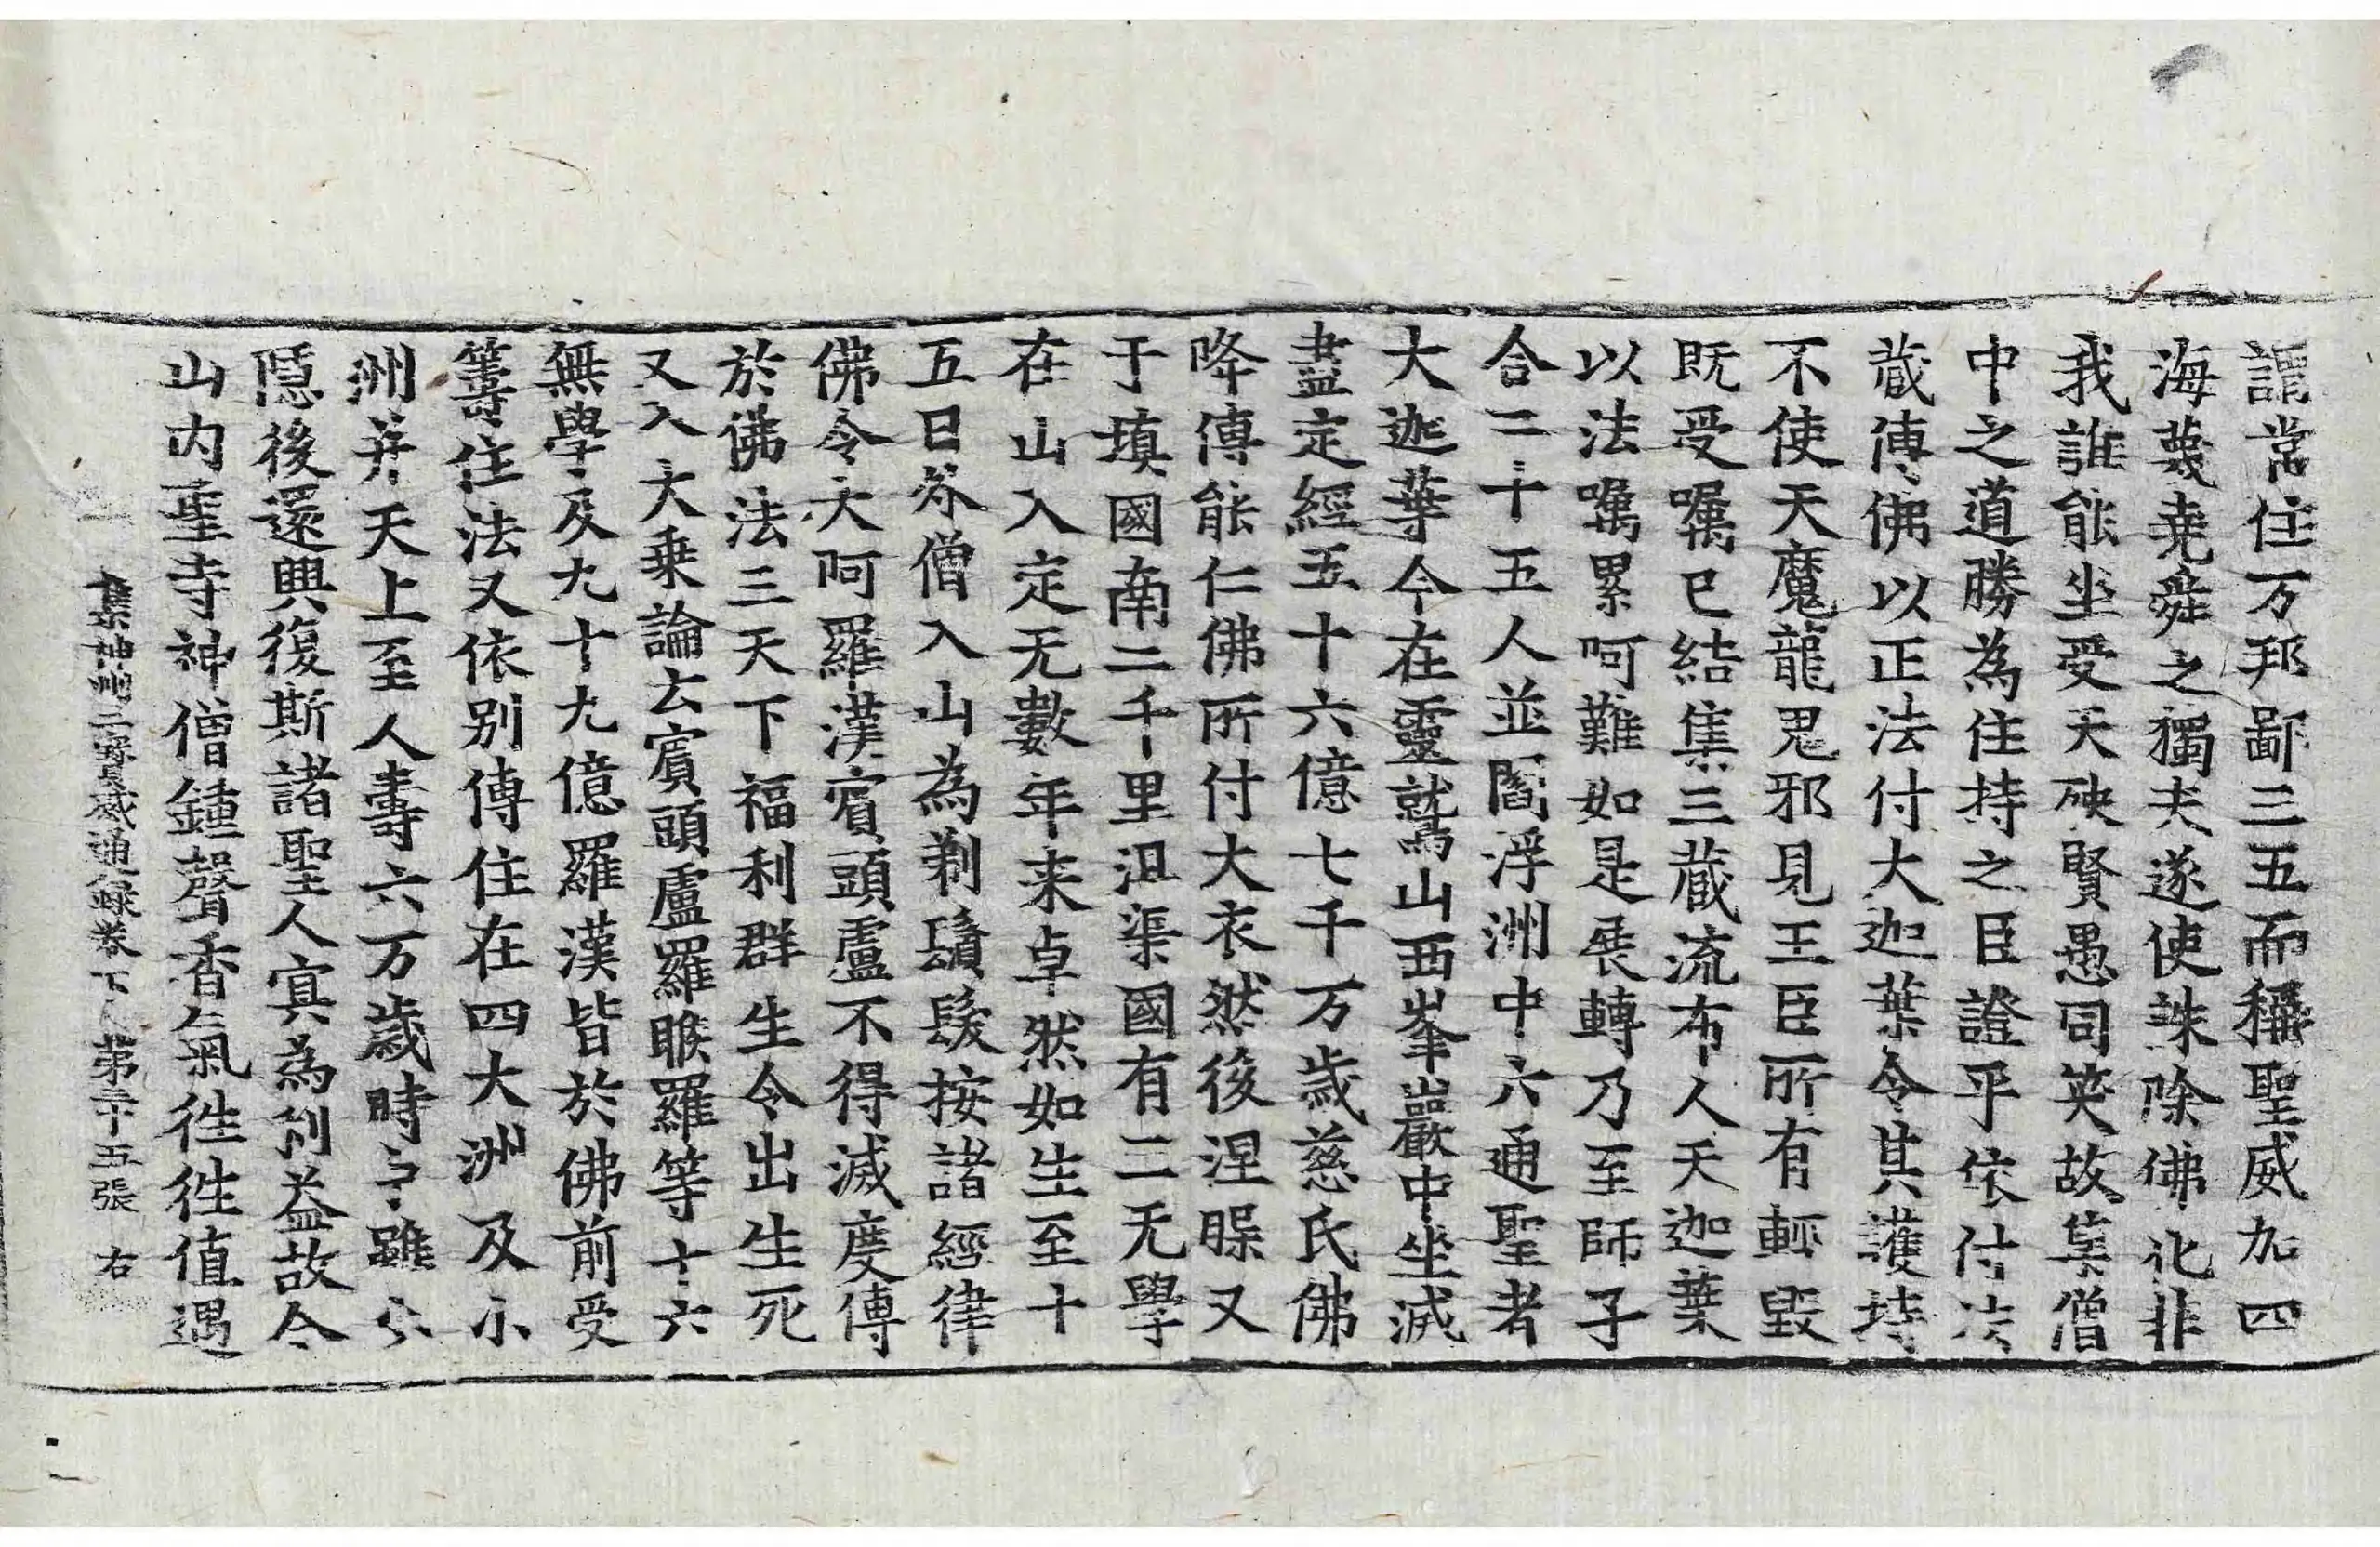 謂常住万邦鄙三五而稱聖威加四
海蔑堯舜之獨夫遂使誅除佛化非
我誰能坐受天殃賢愚同哭故集僧
中之道勝為住持之臣證乎依付法
藏傳佛以正法付大迦葉令其護持
不使天魔龍鬼邪見王臣所有輕毀
既受囑已結集三藏流布人天迦葉
以法囑累阿難如是展轉乃至師子
合二十五人並閻浮洲中六通聖者
大迦葉今在靈鷲山西峯巖中坐滅
盡定經五十六億七千万歲慈氏佛
降傳能仁佛所付大衣然後涅槃又
于填國南二千里沮渠國有三无學
在山入定无數年来卓然如生至十
五日外僧入山為剃鬚髮按諸經律
佛令大阿羅漢賓頭盧不得滅度傳
於佛法三天下福利群生令出生死
又入大乘論云賓頭盧羅睺羅等十六
無學及九十九億羅漢皆於佛前受
籌住法又依別傳住在四大洲及小
洲并天上至人壽六万歲時
隱後還興復斯諸聖人冥為利益故今
山内聖寺神僧鍾聲香氣徃徃值遇
集神州三寶感通錄卷下 第三十五張 右